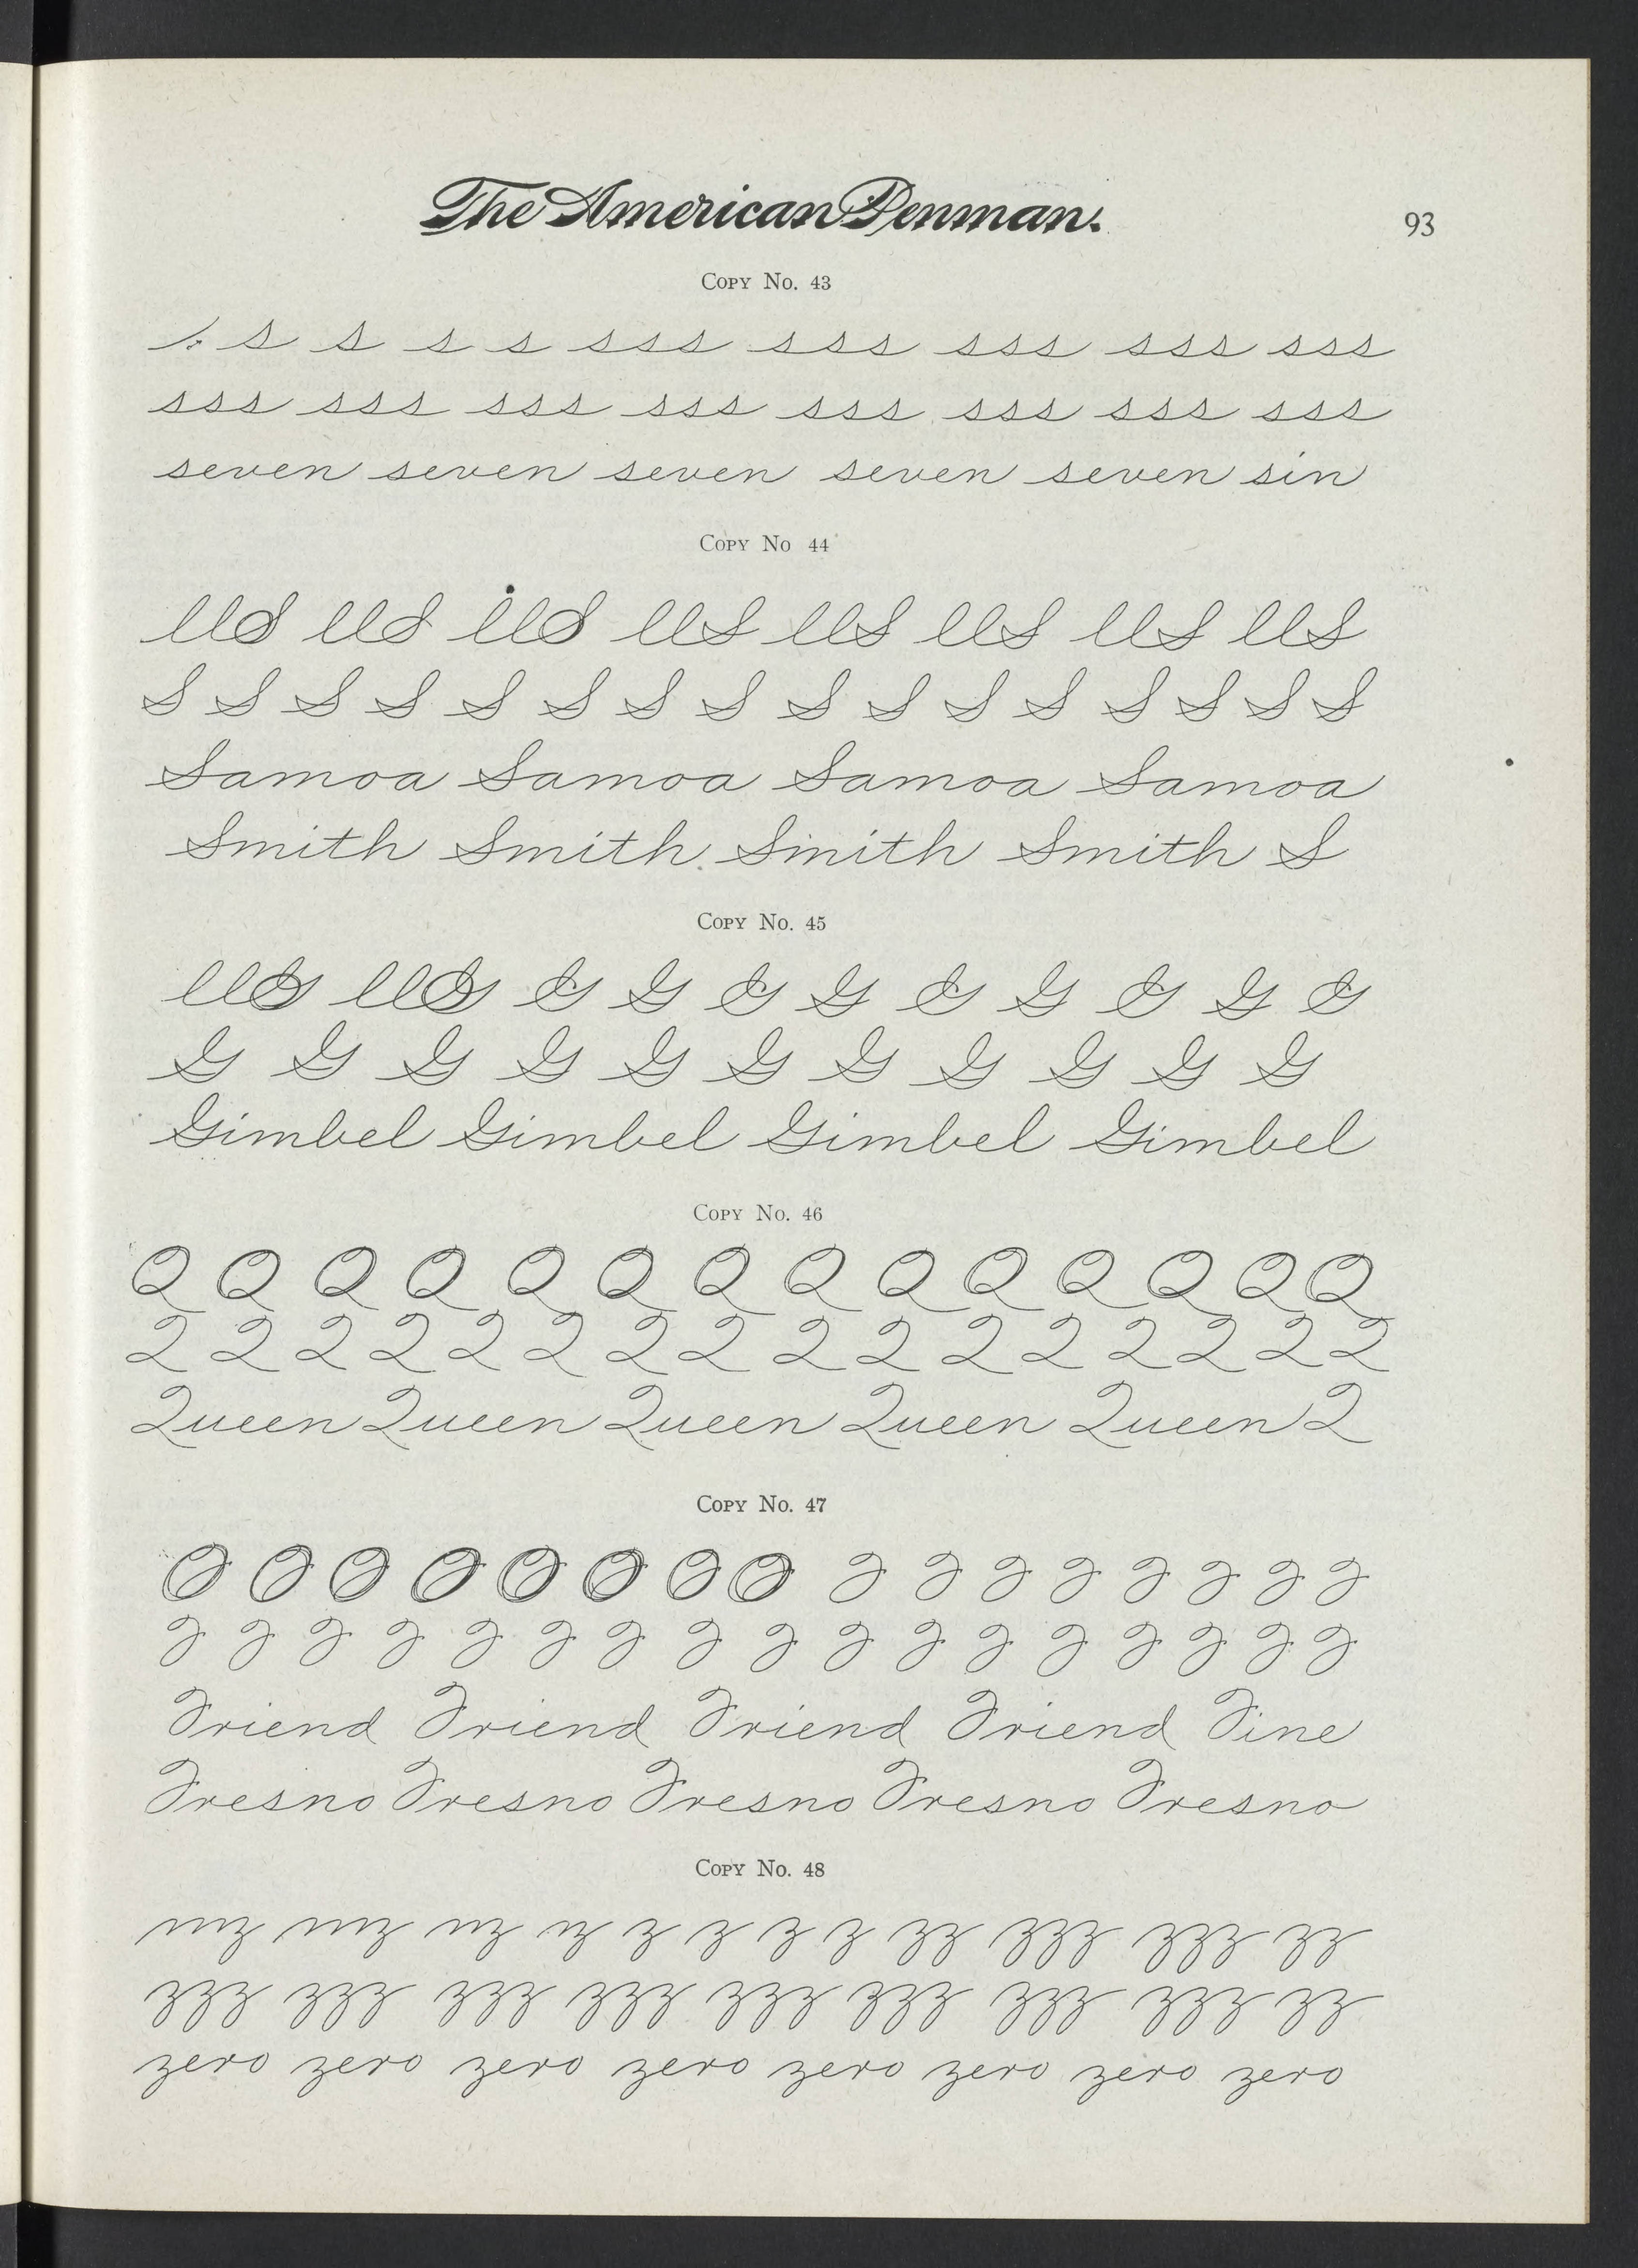 The American Penman.
93
Copy No. 43
s s s s sss sss sss sss sss
sss sss sss sss sss sss sss sss
seven seven seven seven seven sin
Copy No 44
llS llS llS llS llS llS llS llS
S S S S S S S S S S S S S S S S
Samoa Samoa Samoa Samoa
Smith Smith Smith Smith S
Copy No. 45
llG llG G G G G G G G G G
G G G G G G G G G G G
Gimbel Gimbel Gimbel Gimbel
Copy No. 46
Q Q Q Q Q Q Q Q Q Q Q Q Q Q
Q Q Q Q Q Q Q Q Q Q Q Q Q Q Q Q
Queen Queen Queen Queen Queen Q
Copy No. 47
Friend Friend Friend Friend Fine
Fresno Fresno Fresno Fresno Fresno
Copy No. 48
mz mz nz nz z z z z zz zzz zzz zz
zzz zzz zzz zzz zzz zzz zzz zzz zz
zero zero zero zero zero zero zero zero